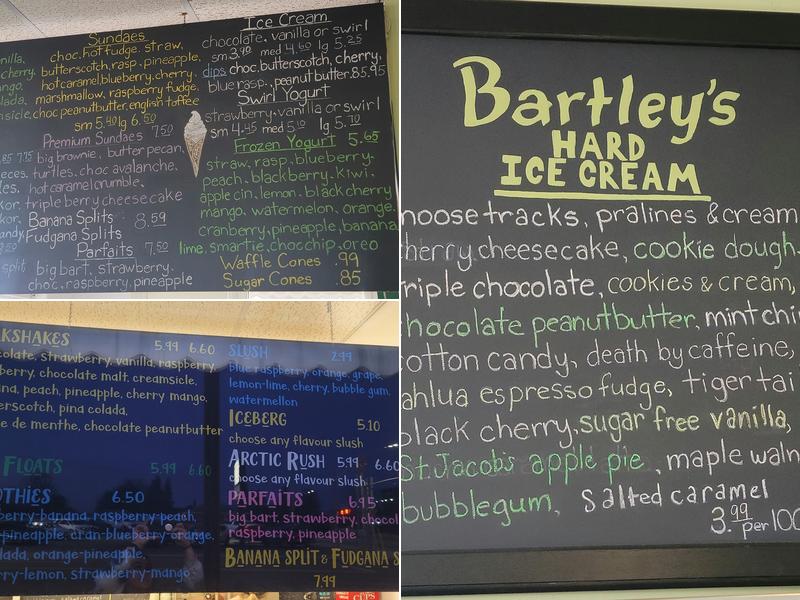 Sundaes
choc.hot fudge. straw,
butterscotch, rasp. pineapple,
hot caramel, blueberry, cherry.
marshmallow, raspberry fudge,
choc peanutbutter, english toffee
sm 5.40 lg 6.50
Premium Sundaes 7.50
big brownie, butter pecan,
turtles. choc avalanche,
hot caramel crumble,
triple berry cheesecake
Banana Splits 8.59
Fudgana Splits
Parfaits 7.50
big bart. strawberry.
choc. raspberry, pineapple
Ice Cream
chocolate, vanilla or swirl
sm 3.90 med 4.60 lg 5.25
dips choc. butterscotch, cherry,
blue rasp., peanut butter .85.95
Swirl Yogurt
strawberry, vanilla or swirl
sm 4.45 med 5.10 lg 5.70
Frozen Yogurt 5.65
straw. rasp. blueberry.
peach, blackberry. kiwi.
apple cin. lemon. black cherry
mango, watermelon, orange.
cranberry, pineapple, banana
lime, smartie, chocchip, oreo
Waffle Cones .99
Sugar Cones .85
split
Bartley's
HARD
ICE CREAM
moose tracks, pralines & cream
cherry cheesecake, cookie dough.
triple chocolate, cookies & cream,
chocolate peanutbutter, mint chi
cotton candy, death by caffeine,
kahlua espresso fudge, tiger tai
black cherry, sugar free vanilla,
St. Jacob's apple pie, maple waln
bubblegum, Salted caramel
3.99 per 100
KSHAKES 5.99 6.60
colate, strawberry, vanilla, raspberry
berry, chocolate malt, creamsicle,
na, peach, pineapple, cherry mango,
erscotch, pina colada,
e de menthe, chocolate peanutbutter
FLOATS 5.99 6.60
OTHIES 6.50
berry-banana, raspberry-peach,
-pineapple, cran-blueberry-orange,
lada, orange-pineapple,
rry-lemon, strawberry-mango
SLUSH 2.99
blue raspberry, orange, grape,
lemon-lime, cherry, bubble gum,
watermelon
ICEBERG 5.10
choose any flavour slush
ARCTIC RUSH 5.99 6.60
choose any flavour slush
PARFAITS 6.95
big bart, strawberry, chocol
raspberry, pineapple
BANANA SPLIT & FUDGANA S
7.99